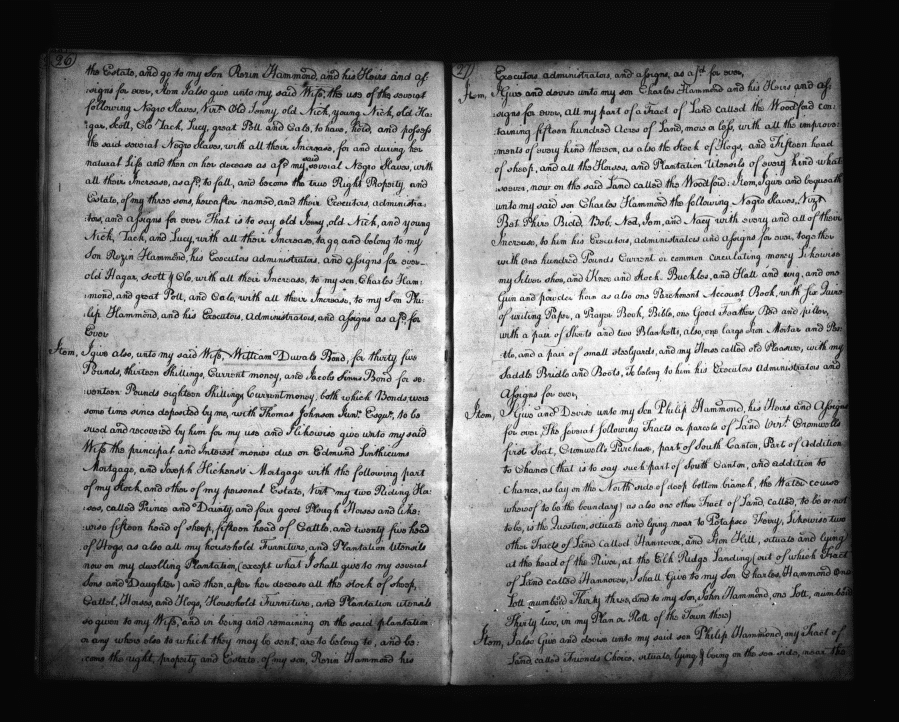 26
the Estate, and go to my Son Rezin Hammond, and his Heirs and as=
signs for ever, Item I also give unto my said Wife, the use of the several
following Negro Slaves, Vizt. Old Jenny, old Nick, young Nick, old Ha=
gar, Scott, Clo Tack, Lucy, great Poll and Cato, to have, hold, and possess
the said several Negro Slaves, with all their Increase, for and during her
natural Life and then on her decease as afd. my said several Negro Slaves, with
all their Increase, as afd. to fall, and become the true Right Property and
Estate, of my three sons, hereafter named, and their Executors, administra=
tors, and assigns for ever That is to say old Jenny, old Nick, and young
Nick, Tack, and Lucy, with all their Increase, to go and belong to my
Son Rezin Hammond, his Executors administrators, and assigns for ever=
old Hagar, Scott & Clo, with all their Increase, to my son, Charles Ham=
mond, and great Poll, and Cato, with all their Increase, to my Son Phi=
lip Hammond, and his Executors, Administrators, and assigns as afd. for
Ever
Item, I give also, unto my said Wife, William Duvals Bond, for thirty five
Pounds, thirteen Shillings, Current money, and Jacob Sinns Bond for se=
venteen Pounds eighteen Shillings Current money, both which Bonds were
some time since deposited by me, with Thomas Johnson Junr. Esqr., to be
sued and recovered by him for my use and I likewise give unto my said
Wife the principal and Interest monies due on Edmund Linthicums
Mortgage, and Joseph Hickens's Mortgage with the following part
of my Stock, and other of my personal Estate, Vizt. my two Riding Ho=
ses, called Prince and Daunty, and four good Plough Horses and like=
wise fifteen head of sheep, fifteen head of Cattle, and twenty five head
of Hogs, as also all my household Furniture, and Plantation Utensils
now on my dwelling Plantation, (except what I shall give to my several
Sons and Daughter) and then, after her decease all the stock of sheep,
Cattel, Horses, and Hogs, Household Furniture, and Plantation utensils
so given to my Wife, and in being and remaining on the said plantation
or any where else to which they may be sent, are to belong to, and be=
come the right, property and Estate, of my son, Rezin Hammond his
27
Executors, administrators, and assigns, as afd. for ever,
Item, I Give and devise unto my son Charles Hammond and his Heirs and As=
signs for ever, all my part of a Tract of Land called the Woodford con=
taining fifteen hundred Acres of Land, more or less, with all the improve=
ments of every kind thereon, as also the Stock of Hogs, and Fifteen head
of sheep, and all the Houses, and Plantation Utensils of every kind what
soever, now on the said Land called the Woodford: Item, I give and bequeath
unto my said son Charles Hammond the following Negro Slaves, Vizt.
Bet Bidd, Bob, Ned, Jem, and Nacy with every and all of their
Increase, to him his Executors, administrators and assigns for ever, together
with one hundred Pounds Current or common circulating money Likewise
my Silver shoe, and Knee and Stock Buckles, and Hatt and wig, and one
Gun and powder horn as also one Parchment Account Book, with Six Quire
of writing Paper, a Prayer Book, Bible, one Good Feather Bed and pillow,
with a pair of Sheets and two Blanketts, also, one large Iron Mortar and Pes=
tle, and a pair of small steelyards, and my Horse called old Pleasure, with my
Saddle Bridle and Boots, To belong to him his Executors Administrators and
Assigns for ever,
Item, I Give and Devise unto my Son Philip Hammond, his Heirs and Assigns
for ever, The several following Tracts or parcels of Land Vizt. Cromwells
first Seat, Cromwells Purchase, part of South Canton, Part of Addition
to Chance (that is to say such part of South Canton, and addition to
Chance, as lay on the North side of deep bottom branch, the Water course
whereof to be the boundary) as also one other Tract of Land called, to be or not
to be, is the Question, situate and lying near to Potapsco Ferry, Likewise two
other Tracts of Land called Hannover, and Iron Hill, situate and lying
at the head of the River, at the Elk Ridge Landing (out of which Tract
of Land called Hannover, I shall Give to my Son Charles Hammond one
Lott, number Thirty three, and to my Son John Hammond, one Lott, number
Thirty two, in my Plan or Plott of the Town there)
Item, I also Give and devise unto my said son Philip Hammond, my Tract of
Land, called Friends Choice, situate, lying & being on the son side, near the